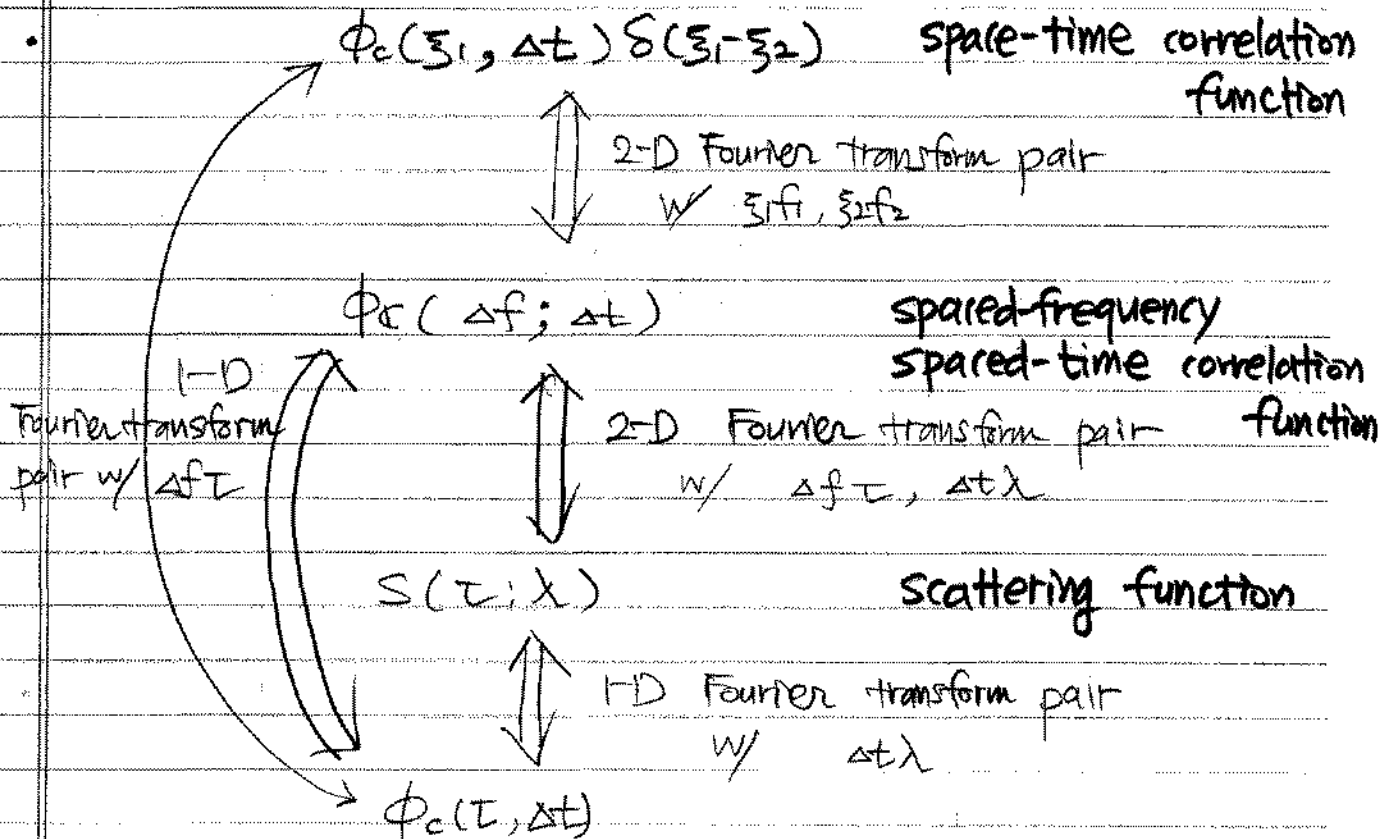 • ϕc(ξ1, Δt) δ(ξ1-ξ2) space-time correlation
function
2-D Fourier transform pair
w/ ξ1f1, ξ2f2
ϕc(Δf; Δt) spaced-frequency
spaced-time correlation
function
1-D
Fourier transform
pair w/ Δfτ
2-D Fourier transform pair
w/ Δfτ, Δtλ
S(τ; λ) scattering function
1-D Fourier transform pair
w/ Δtλ
ϕc(τ, Δt)